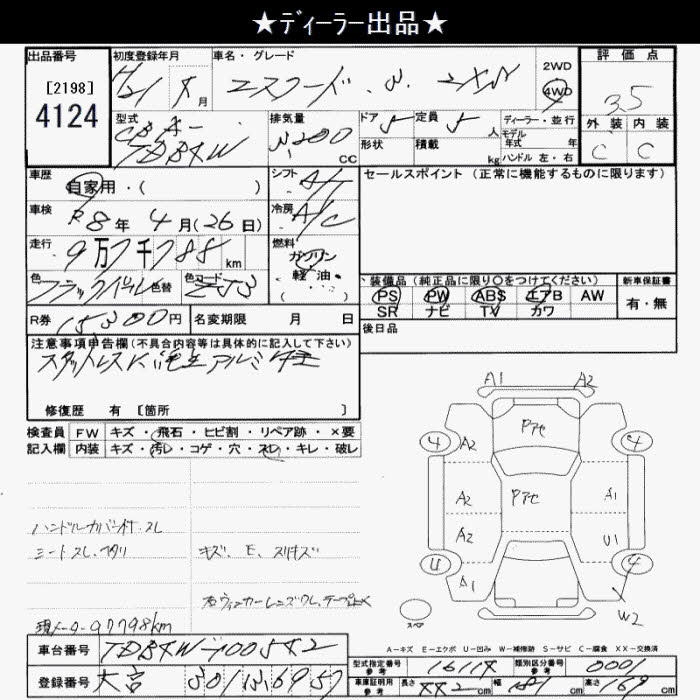 ★ディーラー出品★
出品番号
[2198]
4124
初度登録年月
H21年 月
車名・グレード
エスクード
2WD
4WD
評価点
3.5
外装 内装
C C
型式
CBA-
TDB4W
排気量
cc
ドア 5
定員 5 人
ディーラー・並行
モデル
年式 年
形状
積載 kg
ハンドル 左・右
車歴
自家用・( )
シフト
A/T
セールスポイント(正常に機能するものに限ります)
車検
R8年 4月(26日)
冷房
A/C
走行
9万7千788km
燃料
ガソリン
軽油
( )
色
色替
色コード
ZJ3
装備品(純正品に限り○をつけてください)
PS PW ABS エアB AW
SR ナビ TV カワ
新車保証書
有・無
R券 15300円
名変期限 月 日
後日品
注意事項申告欄(不具合内容等は具体的に記入して下さい)
修復歴 有 [箇所 ]
検査員
記入欄
FW キズ・飛石・ヒビ割・リペア跡・×要
内装 キズ・汚レ・コゲ・穴・スレ・キレ・破レ
A1 A2
Pアセ
4 A2 4
A2 Pアセ A1
A2 U1
A1 4
W2
スペア
ハンドルカバー付.スレ
シートスレ.
キズ、E、スリキズ
右ウィンカーレンズワレ、テープ止メ
現メーター97798km
A-キズ E-エクボ U-凹み W-補修跡 S-サビ C-腐食 XX-交換済
車台番号 TDB4W-100542
登録番号 大宮 301
型式指定番号
参考
16114
類別区分番号
参考
0001
車庫証明用
参考
長さ 442cm
幅 181cm
高さ 169cm